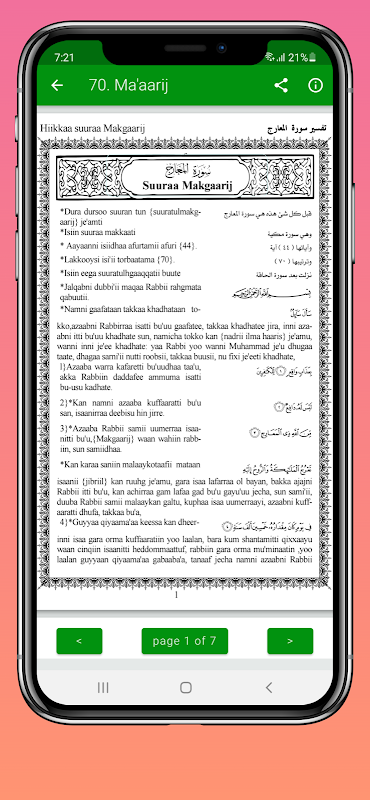 7:21
21%
70. Ma'aarij
Hiikkaa suuraa Makgaarij تفسير سورة المعارج
سورة المعارج
Suuraa Makgaarij
*Dura dursoo suuran tun {suuratulmakg- قبل كل شئ هذه هي سورة المعارج
aarij} je'amti
*Isiin suuraa makkaati وهي سورة مكية
* Aayaanni isiidhaa afurtamii afuri {44}. وآياتها (٤٤) آية
*Lakkooysi isi'ii torbaatama {70}. وترتيبها (٧٠)
*Isiin eega suuratulhgaaqqatii buute نزلت بعد سورة الحاقة
*Jalqabni dubbi'ii maqaa Rabbii rahgmata بِسْمِ اللَّهِ الرَّحْمَٰنِ الرَّحِيمِ
qabuutii.
*Namni gaafataan takkaa khadhataan to- سَأَلَ سَائِلٌ
kko,azaabni Rabbirraa isatti bu'uu gaafatee, takkaa khadhatee jira, inni aza-
abni itti bu'uu khadhate sun, namicha tokko kan {nadrii ilma haaris} je'amu,
wanni inni je'ee khadhate: yaa Rabbi yoo wanni Muhammad je'u dhugaa
taate, dhagaa sami'ii nutti roobsii, takkaa buusii, nu fixi je'eeti khadhate,
1}Azaaba warra kafaretti bu'uudhaa taa'u, بِعَذَابٍ وَاقِعٍ ١ لِلْكَافِرِينَ
akka Rabbiin daddafee ammuma isatti
bu-usu kadhate.
2}*Kan namni azaaba kuffaaratti bu'u لَيْسَ لَهُ دَافِعٌ ٢
san, isaanirraa deebisu hin jirre.
3}*Azaaba Rabbii samii uumerraa isaa- مِنَ اللَّهِ ذِي الْمَعَارِجِ ٣
nitti bu'u,{Makgaarij} waan wahiin rabb-
iin, sun samiidhaa.
*Kan karaa saniin malaaykotaafii mataan تَعْرُجُ الْمَلَائِكَةُ وَالرُّوحُ إِلَيْهِ
isaanii {jibriil} kan ruuhg je'amu, gara isaa lafarraa ol bayan, bakka ajajni
Rabbii itti bu'u, kan achirraa gam lafaa gad bu'u gayu'uu jecha, sun sami'ii,
duuba Rabbii samii malaaykan galtu, kuphaa isaa uumerraayi, azaabni kuff-
aaratti dhufa, takkaa bu'a,
4}*Guyyaa qiyaama'aa keessa kan dheer- فِي يَوْمٍ كَانَ مِقْدَارُهُ خَمْسِينَ أَلْفَ سَنَةٍ ٤
inni isaa gara orma kuffaariatiin yoo laalan, bara kum shantamitti qixxaayu
waan cinqiin isaanitti heddommaattuf, rabbiin gara orma mu'minaatin ,yoo
laalan guyyaan qiyaama'aa gabaaba'a, tanaaf jecha namni azaabni Rabbii
1
<
page 1 of 7
>